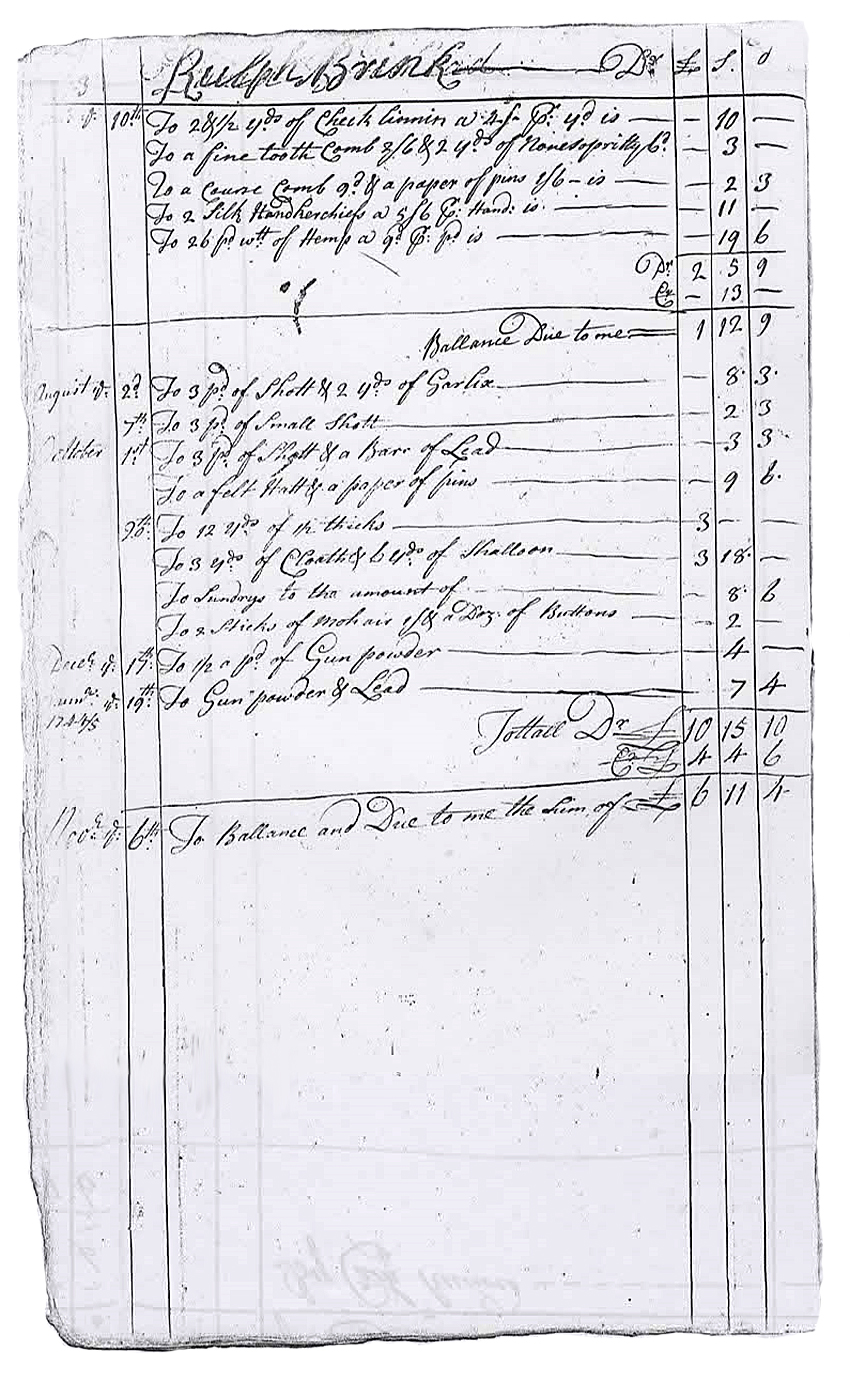 3 Rulph Brinkerd Dr £ s. d
ye 10th To 2 & 1/2 yds of Check linnin a 4/- Pr yd is — 10 —
To a fine tooth Comb 2/6 & 2 yds of Nonesopritty 6d — 3 —
To a course Comb 9d & a paper of pins 1/6 - is — 2 3
To 2 Silk Handkerchiefs a 5/6 Pr Hand: is — 11 —
To 26 pd wtt of Hemp a 9d Pr pd is — 19 6
Dr 2 5 9
Cr — 13 —
Ballance Due to me 1 12 9
August ye 2d To 3 pd of Shott & 2 yds of Garlix — 8 3
7th To 3 pd of Small Shott — 2 3
October 1st To 3 pd of Shott & a Barr of Lead — 3 3
To a felt Hatt & a paper of pins — 9 6
To 12 yds of 1/2 thicks 3 — —
To 3 yds of Cloath & 6 yds of Shalloon 3 18 —
To Sundrys to the amount of — 8 6
To 2 Sticks of Mohair 1/ & a Doz: of Buttons — 2 —
Decr ye 17th To 1/2 a pd of Gun powder — 4 —
ye 19th To Gun powder & Lead 7 4
1744/5
Tottall Dr £ 10 15 10
Cr £ 4 4 6
Novr ye 6th To Ballance and Due to me the Sum of £ 6 11 4